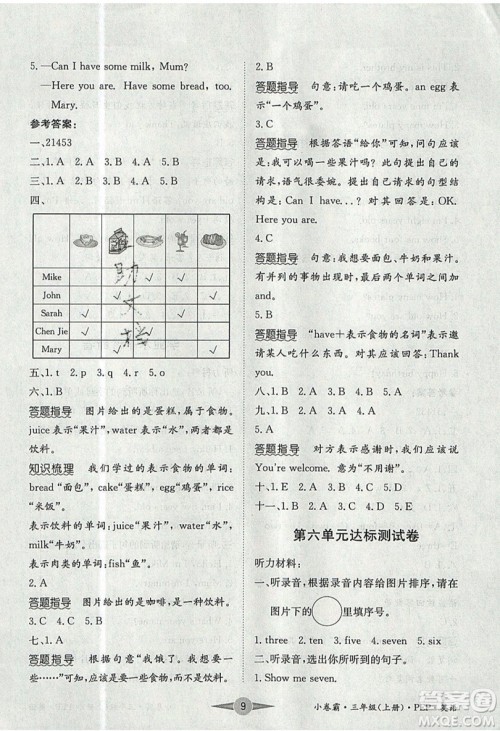 5. —Can I have some milk, Mum?
—Here you are. Have some bread, too.
Mary.
参考答案:
一、21453
二、1. A 2. A 3. B 4. B 5. A
三、1. A 2. B 3. B 4. A 5. B
四、
Mike
John
Sarah
Chen Jie
Mary
五、1. t 2. p 3. q 4. r 5. o
六、1. B
答题指导 图片给出的是蛋糕,属于食物。
juice 表示“果汁”,water 表示“水”,两者都是
饮料。
知识梳理 我们学过的表示食物的单词:
bread “面包”,cake “蛋糕”,egg “鸡蛋”,rice
“米饭”。
表示饮料的单词:juice “果汁”,water “水”,
milk “牛奶”。
表示肉类的单词:fish“鱼”。
2. A
答题指导 图片给出的是咖啡,是一种饮料。
七、1. A
答题指导 根据句意“我饿了。我想要一
些……”可知,此处应填表示食物的单词。
2. B
答题指导 句意:请吃一个鸡蛋。an egg 表
示“一个鸡蛋”。
3. C
答题指导 根据答语“给你”可知,问句应该
是:我能喝一些果汁吗?此句提出自己的
请求,语气很委婉。表示请求的句型结构
是:Can I have...? 对其回答是:OK.
Here you are.
4. C
答题指导 句意:我想要面包、牛奶和果汁。
有并列的事物出现时,最后两个单词之间加
and。
5. B
答题指导 “have+表示食物的名词”表示邀
请某人吃什么东西。对其应回答:Thank
you.
八、1. B 2. A 3. A 4. A 5. B
九、1. C 2. B 3. C 4. B 5. A
十、1. B
答题指导 对方表示感谢时,我们应该说
You're welcome. 意为“不用谢”。
2. B 3. A 4. B 5. B
十一、1. D 2. A 3. E 4. C 5. B
十二、1. B 2. A 3. C
第六单元达标测试卷
听力材料:
一、听录音,根据录音内容给图片排序,请在
图片下的 里填序号。
1. three 2. ten 3. five 4. seven 5. six
二、听录音,选出你所听到的句子。
1. I have seven.
9
小卷霸·三年级(上册)·PEP·英语